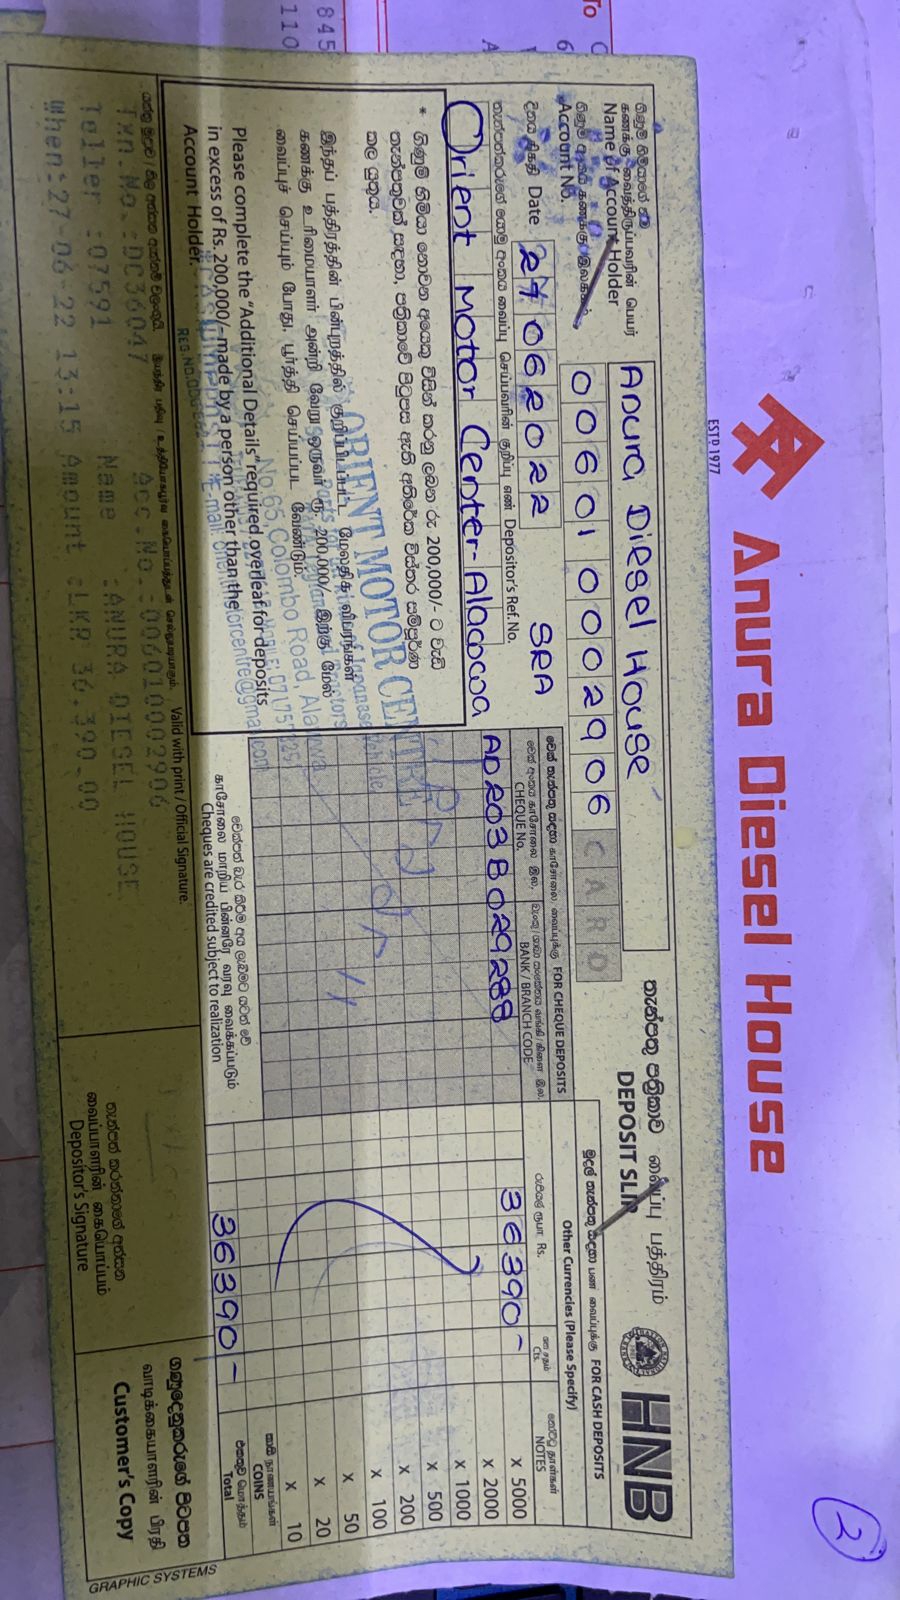 Anura Diesel House
ESTD 1977
2
HNB
තැන්පතු පත්‍රිකාව வைப்பு பத்திரம்
DEPOSIT SLIP
ගිණුම් හිමියාගේ නම
கணக்கு வைத்திருப்பவரின் பெயர்
Name of Account Holder
Anura Diesel House
ගිණුම් අංකය கணக்கு இலக்கம்
Account No.
006010002906 CARD
දිනය திகதி Date 27062022 SRA
තැන්පත්කරුගේ යොමු අංකය வைப்பு செய்பவரின் குறிப்பு எண் Depositor's Ref.No.
Orient Motor Center-Alawwa
FOR CHEQUE DEPOSITS
CHEQUE No.
BANK / BRANCH CODE
AD203B029288
FOR CASH DEPOSITS
Other Currencies (Please Specify)
රුපියල් ரூபா Rs.
ශත சதம் Cts.
NOTES
36390-
x 5000
x 2000
x 1000
x 500
x 200
x 100
x 50
x 20
x 10
COINS
Total
36390-
* ගිණුම් හිමියා නොවන අයෙකු විසින් කරනු ලබන රු 200,000/- ට වැඩි
තැන්පතුවක් සඳහා, පත්‍රිකාවේ පිටුපස ඇති අතිරේක විස්තර සම්පූර්ණ
කල යුතුය.
இந்தப் பத்திரத்தின் பின்புறத்தில் குறிப்பிடப்பட்ட மேலதிக விபரங்கள்
கணக்கு உரிமையாளர் அன்றி வேறு ஒருவர் ரூ 200,000/- இற்கு மேல்
வைப்புச் செய்யும் போது பூர்த்தி செய்யப்பட வேண்டும்.
Please complete the "Additional Details" required overleaf for deposits
in excess of Rs. 200,000/- made by a person other than the
Account Holder.
ORIENT MOTOR CENTRE
No. 65, Colombo Road, Alawwa
Cheques are credited subject to realization
Valid with print / Official Signature.
Txn.No.:DC36047 Acc.No.:006010002906
Teller :07591 Name :ANURA DIESEL HOUSE
When:27-06-22 13:15 Amount :LKR 36,390.00
තැන්පත් කරන්නාගේ අත්සන
வைப்பாளரின் கையொப்பம்
Depositor's Signature
ගණුදෙනුකරුගේ පිටපත
வாடிக்கையாளரின் பிரதி
Customer's Copy
GRAPHIC SYSTEMS